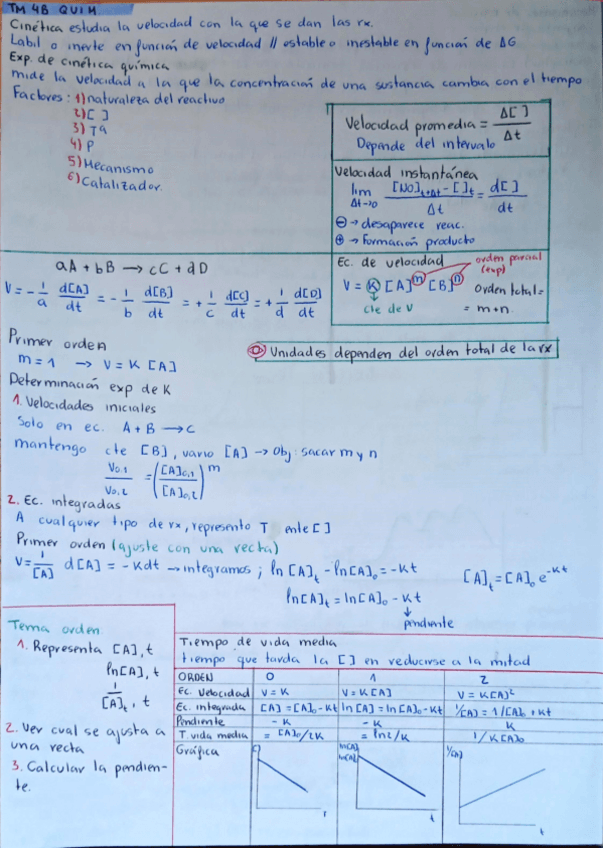 TM 4B QUIM.
Cinética estudia la velocidad con la que se dan las rx.
Labil o inerte en función de velocidad // estable o inestable en función de ΔG
Exp. de cinética química
mide la velocidad a la que la concentración de una sustancia cambia con el tiempo
Factores: 1) naturaleza del reactivo
2) [ ]
3) Tª
4) P
5) Mecanismo
6) Catalizador.
Velocidad promedia = Δ[ ] / Δt
Depende del intervalo
Velocidad instantánea
lim Δt→0 [No]t+Δt - [ ]t / Δt = d[ ] / dt
⊖ → desaparece reac.
⊕ → Formación producto
Ec. de velocidad
orden parcial (exp)
V = K [A]^m [B]^n
Orden total = m+n.
cte de V
aA + bB → cC + dD
V = - 1/a d[A]/dt = - 1/b d[B]/dt = + 1/c d[C]/dt = + 1/d d[D]/dt
Primer orden
m = 1 → V = K [A]
Unidades dependen del orden total de la rx
Determinación exp de K
1. Velocidades iniciales
Solo en ec. A + B → C
mantengo cte [B], vario [A] → Obj: sacar m y n
V0,1 / V0,2 = ([A]0,1 / [A]0,2)^m
2. Ec. integradas
A cualquier tipo de rx, represento T ente [ ]
Primer orden (ajuste con una recta)
V = 1/[A] d[A] = -Kdt → integramos; ln[A]t - ln[A]0 = -Kt
[A]t = [A]0 e^-Kt
ln[A]t = ln[A]0 - Kt
pendiente
Tema orden
1. Representa [A], t
ln[A], t
1/[A]t, t
2. Ver cual se ajusta a
una recta
3. Calcular la pendien-
te.
Tiempo de vida media
tiempo que tarda la [ ] en reducirse a la mitad
ORDEN 0 1 2
Ec. Velocidad V = K V = K[A] V = K[A]²
Ec. integrada [A] = [A]0 - Kt ln[A] = ln[A]0 - Kt 1/[A] = 1/[A]0 + Kt
Pendiente -K -K K
T. vida media = [A]0/2K = ln2/K 1/K[A]0
Gráfica
1/[A]
t
t